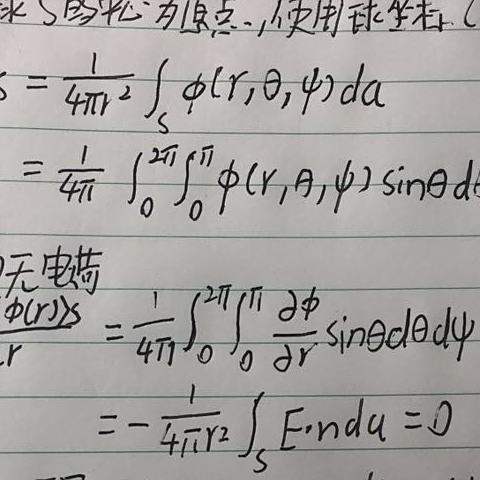 球S的球心为原点,使用球坐标(
= \frac{1}{4πr²} ∫_S φ(r,θ,ψ)da
= \frac{1}{4π} ∫_0^{2π} ∫_0^{π} φ(r,θ,ψ) sinθ
无电荷
\frac{φ(r)⟩s}{r} = \frac{1}{4π} ∫_0^{2π} ∫_0^{π} \frac{∂φ}{∂r} sinθdθdψ
= - \frac{1}{4πr²} ∫_S E·nda = 0